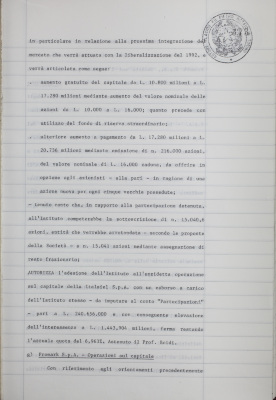 in particolare in relazione alla prossima integrazione del
mercato che verrà attuata con la liberalizzazione del 1992, e
verrà articolata come segue:
. aumento gratuito del capitale da L. 10.800 milioni a L.
17.280 milioni mediante aumento del valore nominale delle
azioni da L. 10.000 a L. 16.000; quanto precede con
utilizzo del fondo di riserva straordinario;
. ulteriore aumento a pagamento da L. 17.280 milioni a L.
20.736 milioni mediante emissione di n. 216.000 azioni,
del valore nominale di L. 16.000 cadauna, da offrire in
opzione agli azionisti - alla pari - in ragione di una
azione nuova per ogni cinque vecchie possedute;
- tenuto conto che, in rapporto alla partecipazione detenuta,
all'Istituto competerebbe in sottoscrizione di n. 15.040,8
azioni, entità che verrebbe arrotondata - secondo la proposta
della Società - a n. 15.041 azioni mediante assegnazione di
resto frazionario;
AUTORIZZA l'adesione dell'Istituto all'anzidetta operazione
sul capitale della S.p.A. con un esborso a carico
dell'Istituto stesso - da imputare al conto "Partecipazioni"
- pari a L. 240.656.000 e con conseguente elevazione
dell'interessenza a L. 1.443,904 milioni, ferma restando
l'attuale quota del 6,963%. Astenuto il Prof.
g) S.p.A. - Operazioni sul capitale
Con riferimento agli orientamenti precedentemente